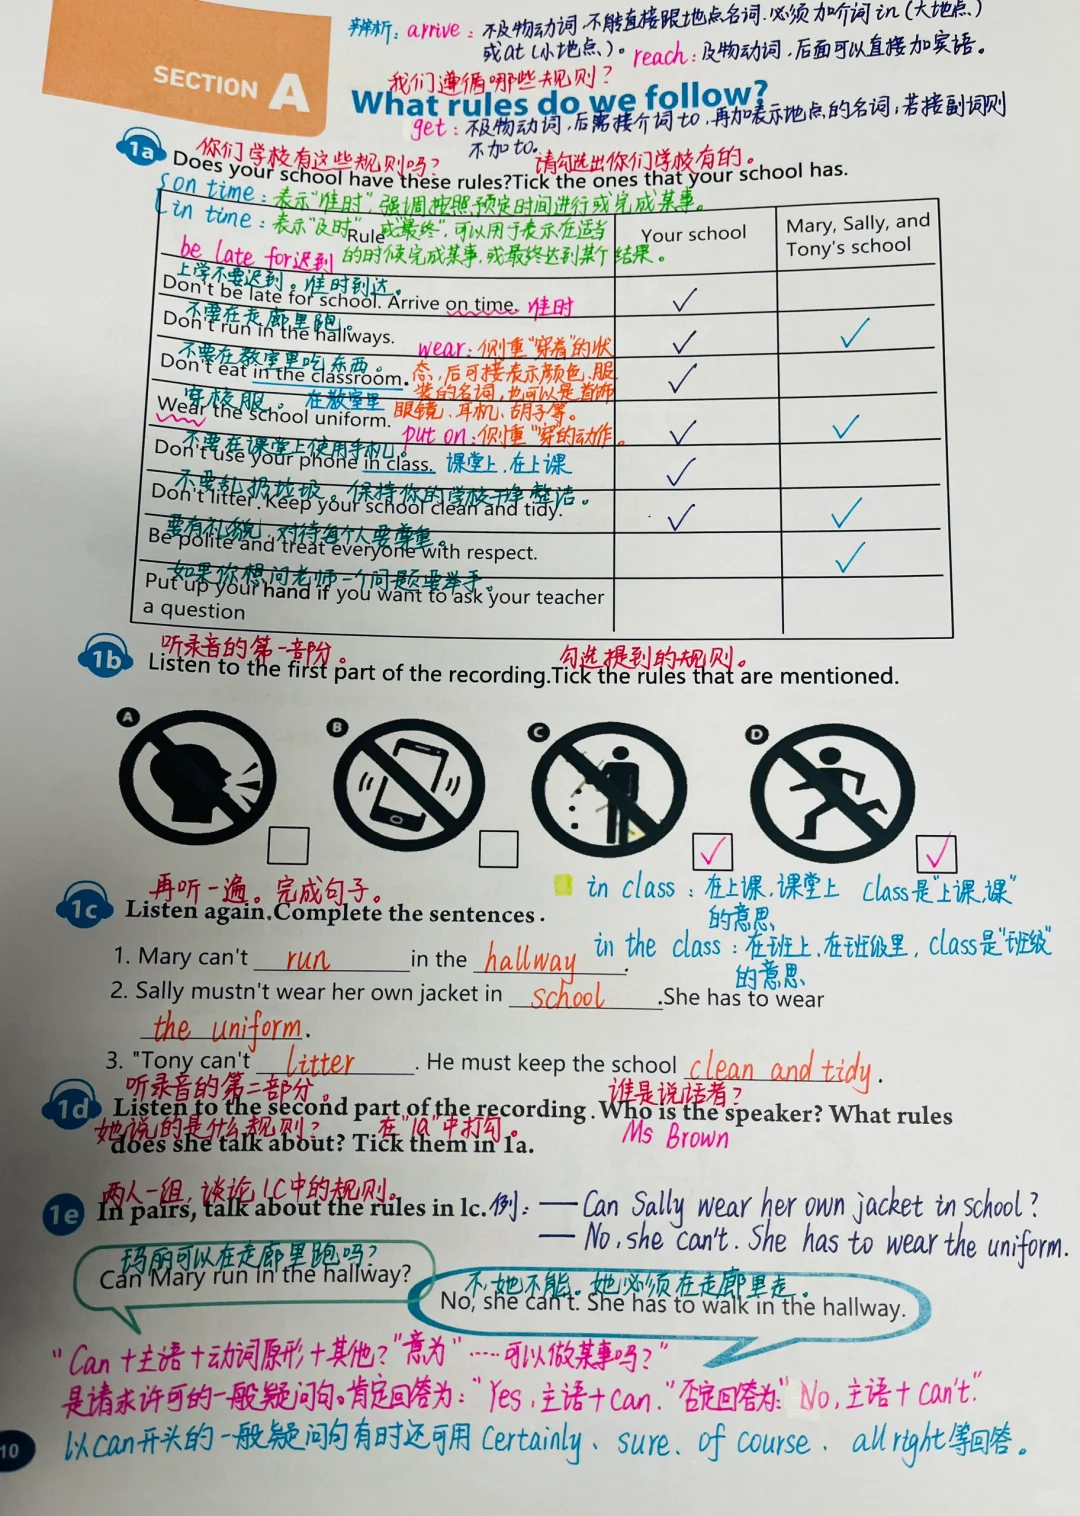 辨析：arrive：不及物动词，不能直接跟地点名词，必须加介词in（大地点）
或at（小地点）。 reach：及物动词，后面可以直接加宾语。
SECTION A
我们遵循哪些规则？
What rules do we follow?
get：不及物动词，后需接介词to，再加表示地点的名词；若接副词则
不加to。
你们学校有这些规则吗？ 请勾选出你们学校有的。
1a Does your school have these rules?Tick the ones that your school has.
on time：表示“准时”，强调按照预定时间进行或完成某事。
in time：表示“及时”或“最终”，可以用于表示在适当
的时候完成某事，或最终达到某个结果。
Rule Your school Mary, Sally, and Tony's school
be late for迟到
上学不要迟到。准时到达。
Don't be late for school. Arrive on time. 准时 ✓
不要在走廊里跑。
Don't run in the hallways. ✓ ✓
wear：侧重“穿着”的状
态，后可接表示颜色、服
装的名词，也可以是首饰
眼镜、耳机、胡子等。
不要在教室里吃东西。
Don't eat in the classroom. ✓
穿校服。 在教室里
Wear the school uniform. ✓ ✓
put on：侧重“穿”的动作。
不要在课堂上使用手机！
Don't use your phone in class. 课堂上，在上课 ✓
不要乱扔垃圾。保持你的学校干净整洁。
Don't litter. Keep your school clean and tidy. ✓ ✓
要有礼貌，对待每个人要尊重。
Be polite and treat everyone with respect. ✓
如果你想问老师一个问题要举手。
Put up your hand if you want to ask your teacher
a question
听录音的第一部分。 勾选提到的规则。
1b Listen to the first part of the recording.Tick the rules that are mentioned.
A B C D
✓ ✓
再听一遍。完成句子。
1c Listen again.Complete the sentences.
in class：在上课，课堂上 class是“上课，课”
的意思
in the class：在班上，在班级里，class是“班级”
的意思
1. Mary can't run in the hallway.
2. Sally mustn't wear her own jacket in school.She has to wear
the uniform.
3. "Tony can't litter. He must keep the school clean and tidy.
听录音的第二部分。 谁是说话者？
1d Listen to the second part of the recording.Who is the speaker? What rules
她说的是什么规则？ 在“1a”中打勾。 Ms Brown
does she talk about? Tick them in 1a.
两人一组，谈论1C中的规则。
1e In pairs, talk about the rules in lc.
例：— Can Sally wear her own jacket in school?
— No, she can't. She has to wear the uniform.
玛丽可以在走廊里跑吗？
Can Mary run in the hallway?
不，她不能。她必须在走廊里走。
No, she can't. She has to walk in the hallway.
“Can＋主语＋动词原形＋其他？”意为“……可以做某事吗？”
是请求许可的一般疑问句。肯定回答为：“Yes，主语＋can.”否定回答为：“No，主语＋can't.”
以can开头的一般疑问句有时还可用 Certainly、sure、of course、all right等回答。
10